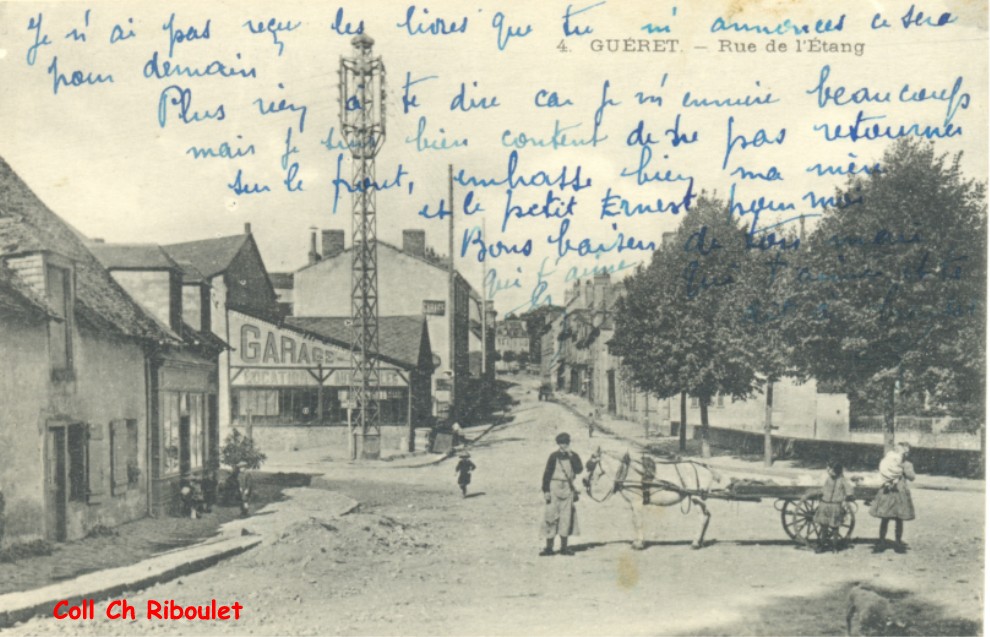 Je n'ai pas reçu les livres que tu m'annonces ce sera
pour demain
4. GUÉRET. — Rue de l'Étang
Plus rien à te dire car je m'ennuie beaucoup
mais je suis bien content de ne pas retourner
sur le front, embrasse bien ma mère
et le petit Ernest pour moi
Bons baisers de ton mari
qui t'aime
que t'aime et te
GARAGE
LOCATION
Coll Ch Riboulet